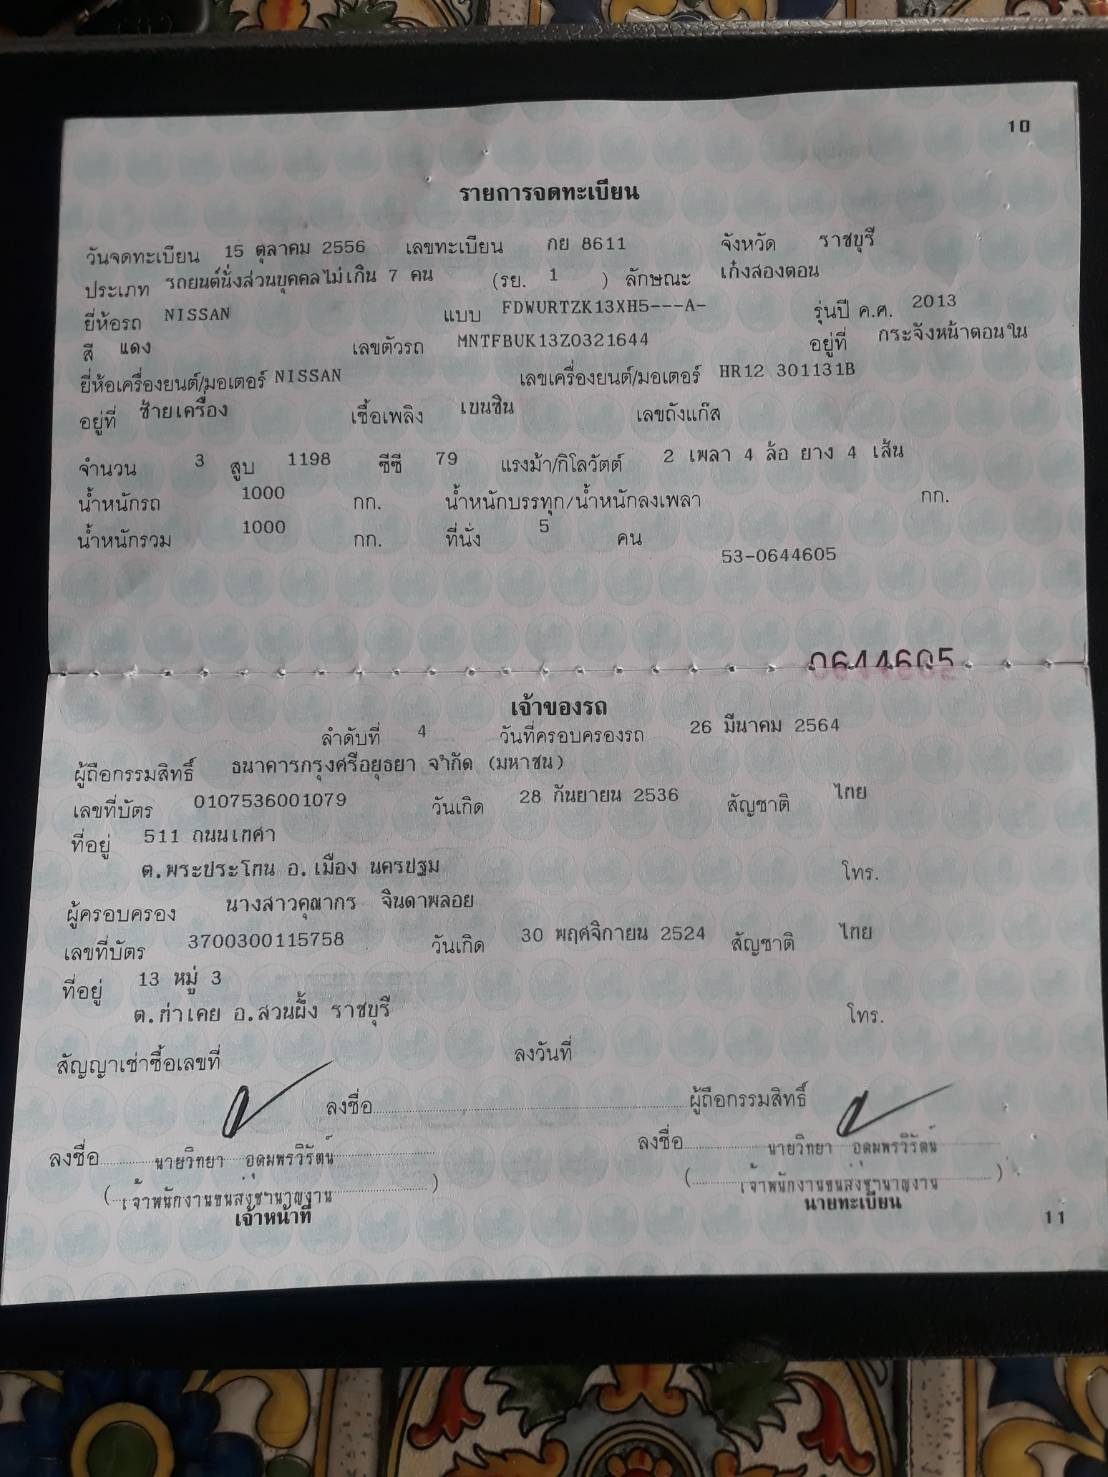 10
รายการจดทะเบียน
วันจดทะเบียน 15 ตุลาคม 2556 เลขทะเบียน กย 8611 จังหวัด ราชบุรี
ประเภท รถยนต์นั่งส่วนบุคคลไม่เกิน 7 คน (รย. 1 ) ลักษณะ เก๋งสองตอน
ยี่ห้อรถ NISSAN แบบ FDWURTZK13XH5---A- รุ่นปี ค.ศ. 2013
สี แดง เลขตัวรถ MNTFBUK13Z0321644 อยู่ที่ กระจังหน้าตอนใน
ยี่ห้อเครื่องยนต์/มอเตอร์ NISSAN เลขเครื่องยนต์/มอเตอร์ HR12 301131B
อยู่ที่ ซ้ายเครื่อง เชื้อเพลิง เบนซิน เลขถังแก๊ส
จำนวน 3 สูบ 1198 ซีซี 79 แรงม้า/กิโลวัตต์ 2 เพลา 4 ล้อ ยาง 4 เส้น
น้ำหนักรถ 1000 กก. น้ำหนักบรรทุก/น้ำหนักลงเพลา กก.
น้ำหนักรวม 1000 กก. ที่นั่ง 5 คน
53-0644605
0644605
เจ้าของรถ
ลำดับที่ 4 วันที่ครอบครองรถ 26 มีนาคม 2564
ผู้ถือกรรมสิทธิ์ ธนาคารกรุงศรีอยุธยา จำกัด (มหาชน)
เลขที่บัตร 0107536001079 วันเกิด 28 กันยายน 2536 สัญชาติ ไทย
ที่อยู่ 511 ถนนเทศา
ต.พระประโทน อ.เมือง นครปฐม โทร.
ผู้ครอบครอง นางสาวคุณากร จินดาพลอย
เลขที่บัตร 3700300115758 วันเกิด 30 พฤศจิกายน 2524 สัญชาติ ไทย
ที่อยู่ 13 หมู่ 3
ต.ท่าเคย อ.สวนผึ้ง ราชบุรี โทร.
สัญญาเช่าซื้อเลขที่ ลงวันที่
ลงชื่อ ผู้ถือกรรมสิทธิ์
ลงชื่อ นายวิทยา อุดมพรวิรัตน์ ลงชื่อ นายวิทยา อุดมพรวิรัตน์
( เจ้าพนักงานขนส่งชำนาญงาน ) ( เจ้าพนักงานขนส่งชำนาญงาน )
เจ้าหน้าที่ นายทะเบียน
11